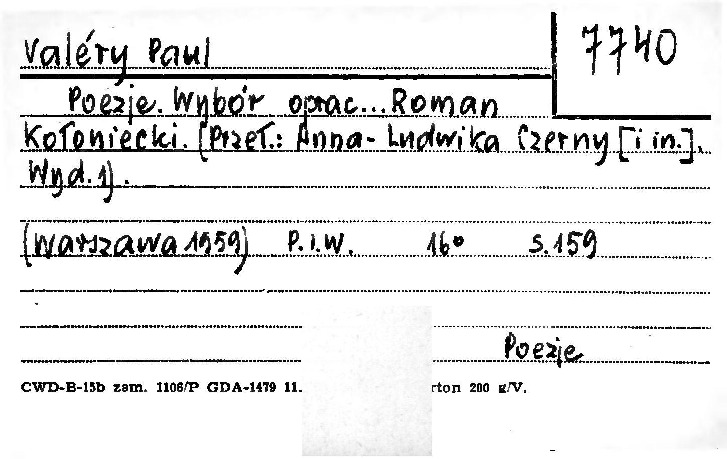 Valéry Paul
7740
Poezje. Wybór oprac... Roman
Kołoniecki. [Przeł.: Anna-Ludwika Czerny [i in.].
Wyd. 1].
[Warszawa 1959] P.I.W. 16° s. 159
Poezje
CWD-B-15b zam. 1106/P GDA-1479 11. rton 200 g/V.